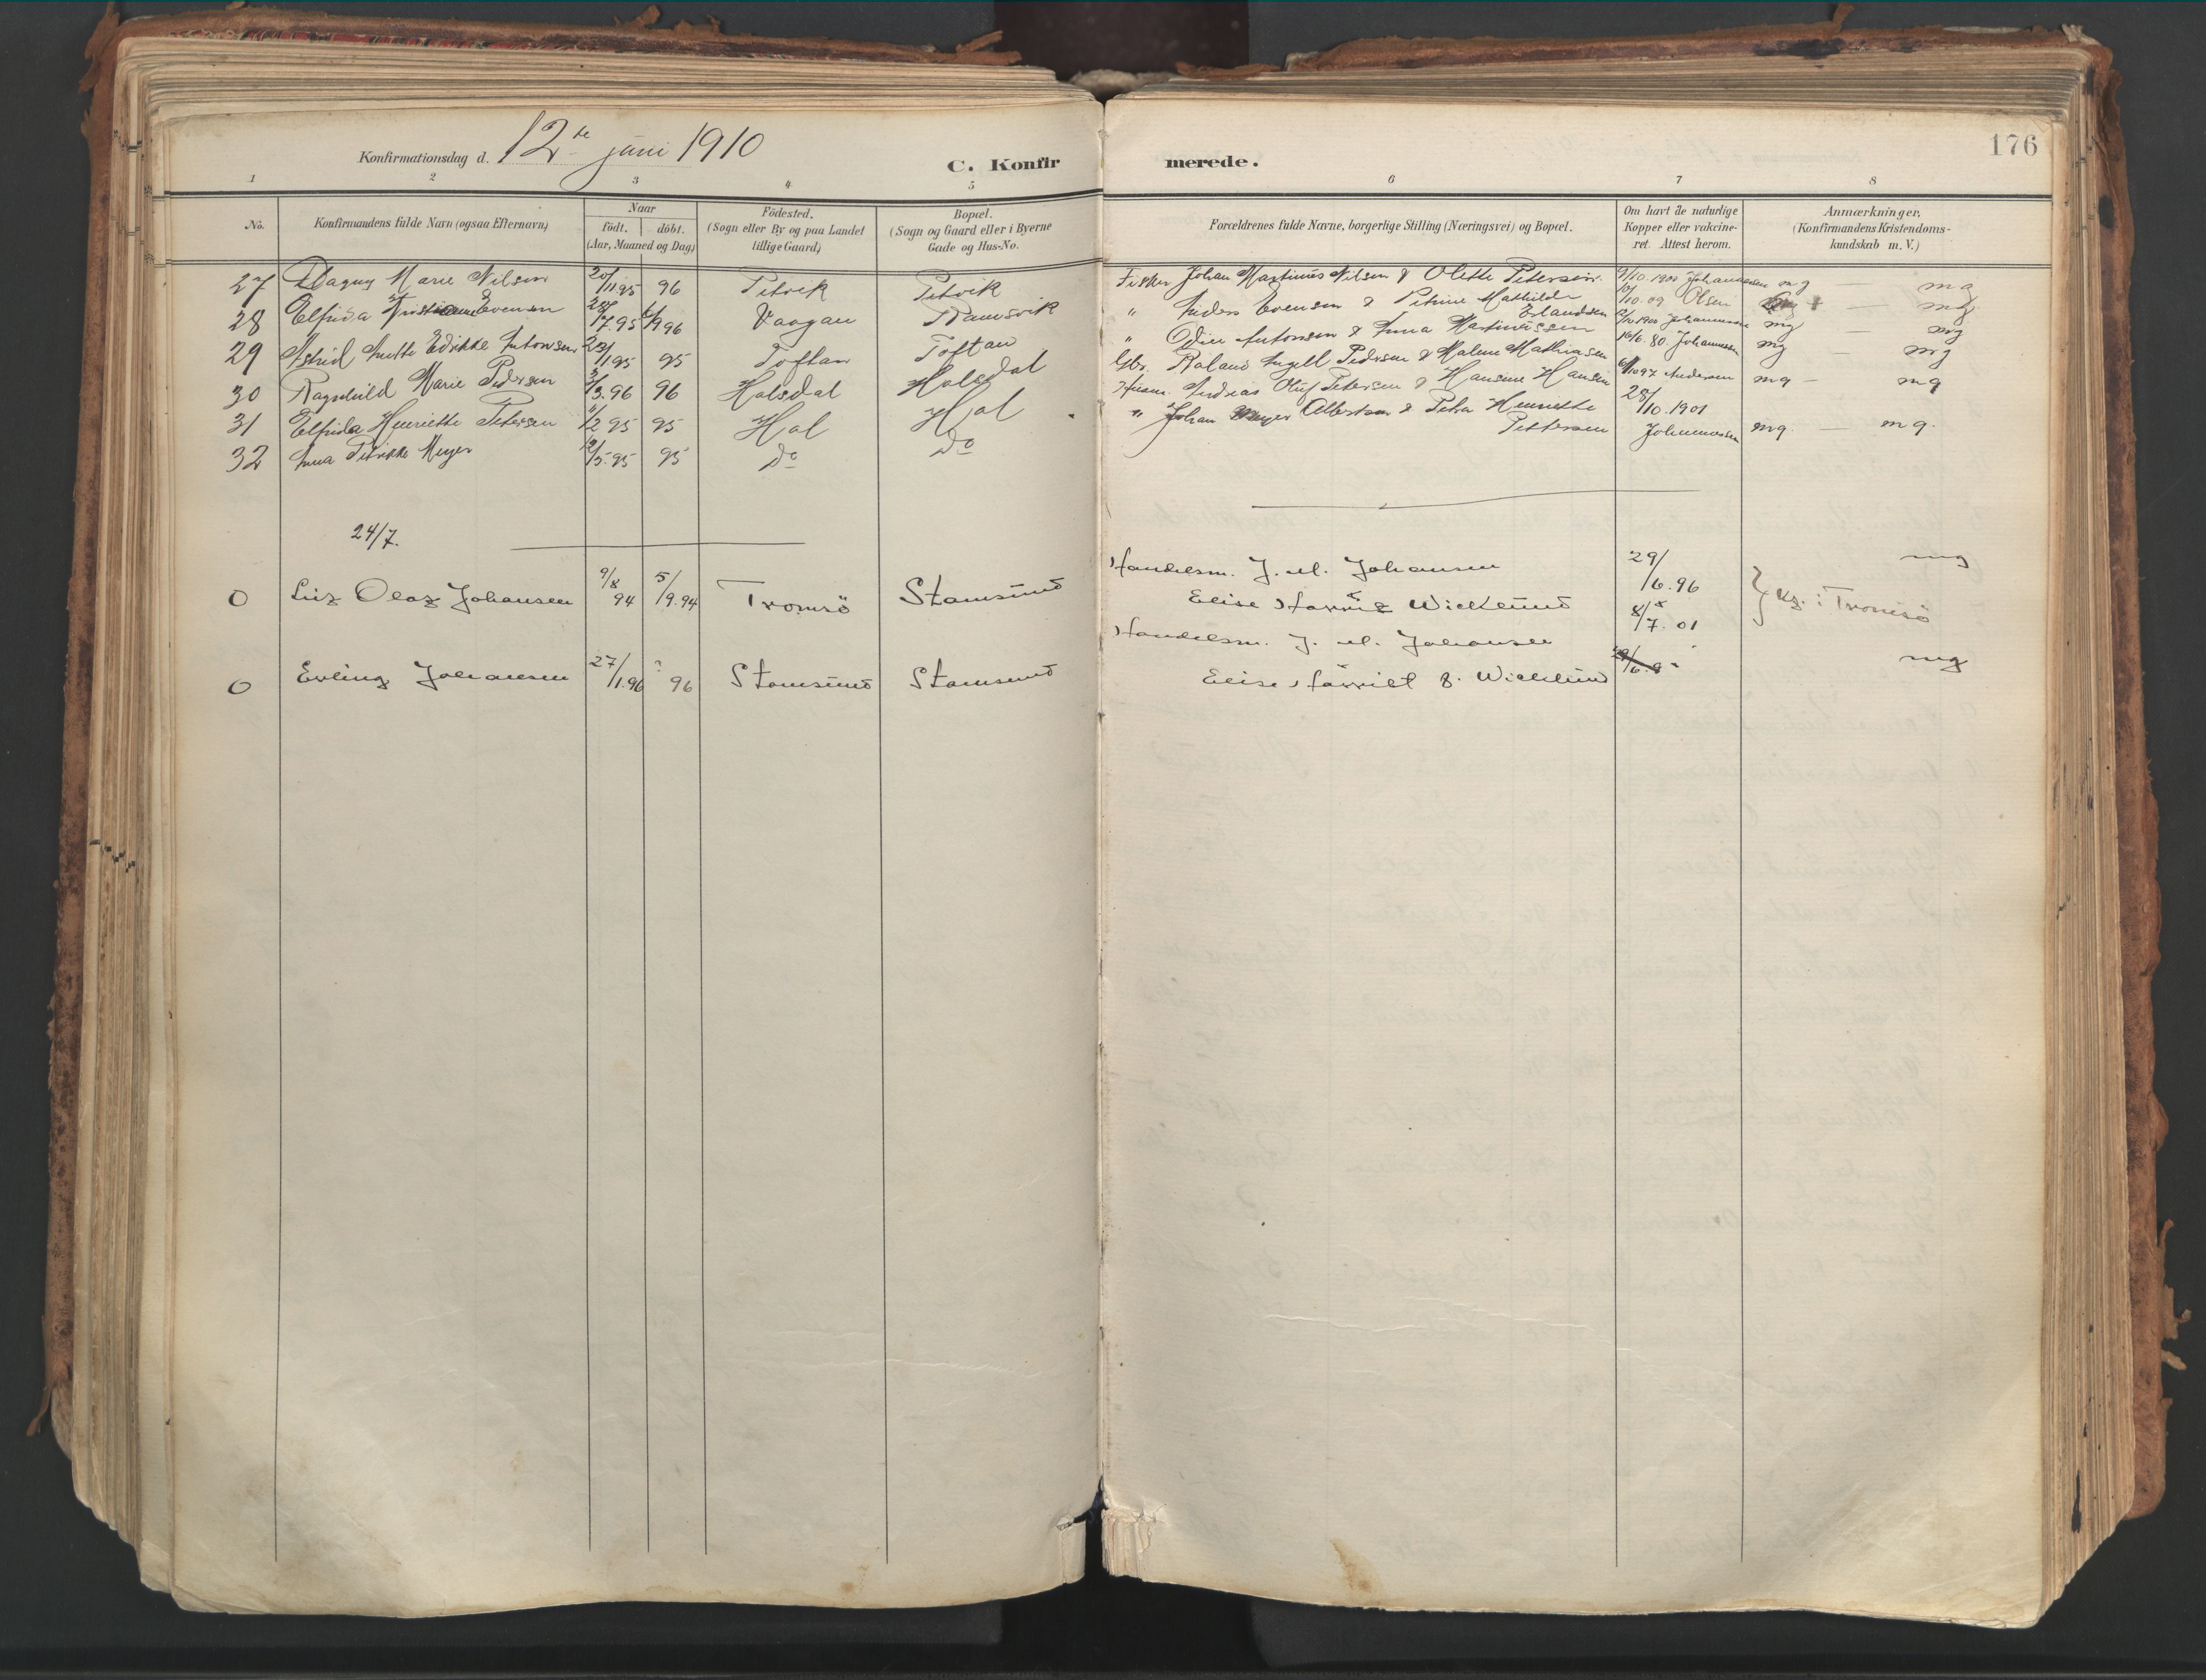 Konfirmationsdag d. 12te juni 1910
C. Konfir
merede.
176
1 2 3 4 5 6 7 8
No.
Konfirmandens fulde Navn (ogsaa Efternavn)
Naar
født. döbt.
(Aar, Maaned og Dag)
Födested.
(Sogn eller By og paa Landet
tillige Gaard)
Bopæl.
(Sogn og Gaard eller i Byerne
Gade og Hus-No.
Forældrenes fulde Navne, borgerlige Stilling (Næringsvei) og Bopæl.
Om havt de naturlige
Kopper eller vakcine-
ret. Attest herom.
Anmærkninger.
(Konfirmandens Kristendoms-
kundskab m. V.)
27 Dagny Marie Nilsen 20/11 95 96 Petvik Petvik
Fisker Johan Martinus Nilsen & Olette Petersen 9/10.1900 Johannessen mg
28 Elfrida Evensen 7.95 Vaagan Ramsvik
" Anders Evensen & Petrine Mathilde Erlandsen Olsen mg
29 Astrid Anette Edrikke Antonsen 1 95 95 Toftan Toftan
" Odin Antonsen & Anna Martinussen Johannessen mg — mg
30 Ragnhild Marie Pedersen 3.96 96 Holsdal Holsdal
Gbr. Roland Angell Pedersen & Malene Mathiasen 16/6.80. Johannessen mg — mg
31 Elfrida Henriette Petersen 11/2 95 95 Hol Hol
Husm. Andreas Oluf Petersen & Hansine Hansen 6/10 97 Andersen mg — mg
32 Anna Petrikke Meyer 12/5.95 95 Do Do
" Johan Meyer Albertsen & Petra Henriette Pettersen 28/10.1901 Johannessen mg — mg.
24/7.
0 Leiz Olaz Johansen 9/8 94 5/9.94 Tromsö Stamsund
Handelsm. J. M. Johansen 29/6.96 mg
Elise Wicklund 8/7.01 } i Tromsö
0 Erling Johansen 27/1.96 ? 96 Stamsund Stamsund
Handelsm. J. M. Johansen
Elise Harriet f. Wicklund mg